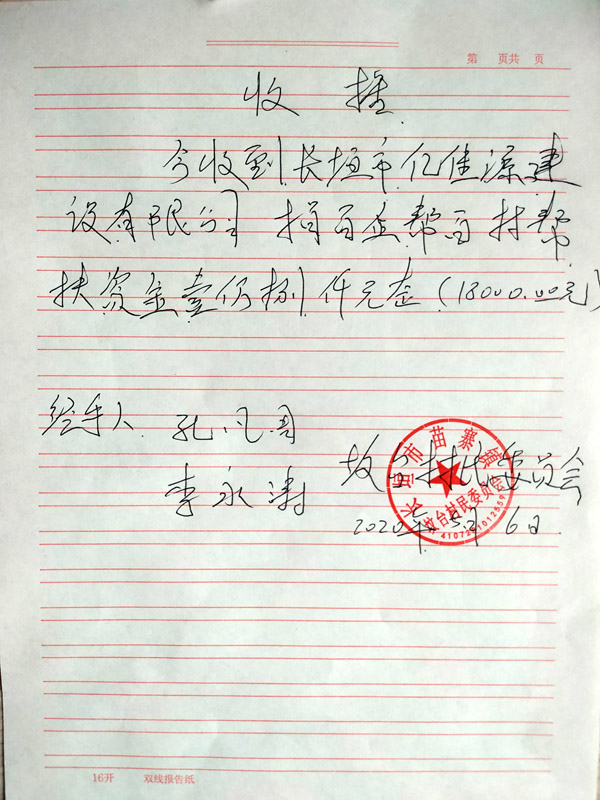 第 页共 页
收 据
今收到长垣市亿佳源建
设有限公司 捐百企帮百村帮
扶资金壹仍捌仟元整（18000.00元）
经手人 孔凡周
李永涛
坟台村民委员会
2020年5月6日
长垣市苗寨镇
坟台村民委员会
4107281012559
16开 双线报告纸